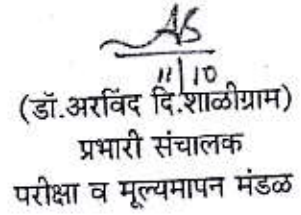 11/10
(डॉ.अरविंद दि.शाळीग्राम)
प्रभारी संचालक
परीक्षा व मूल्यमापन मंडळ